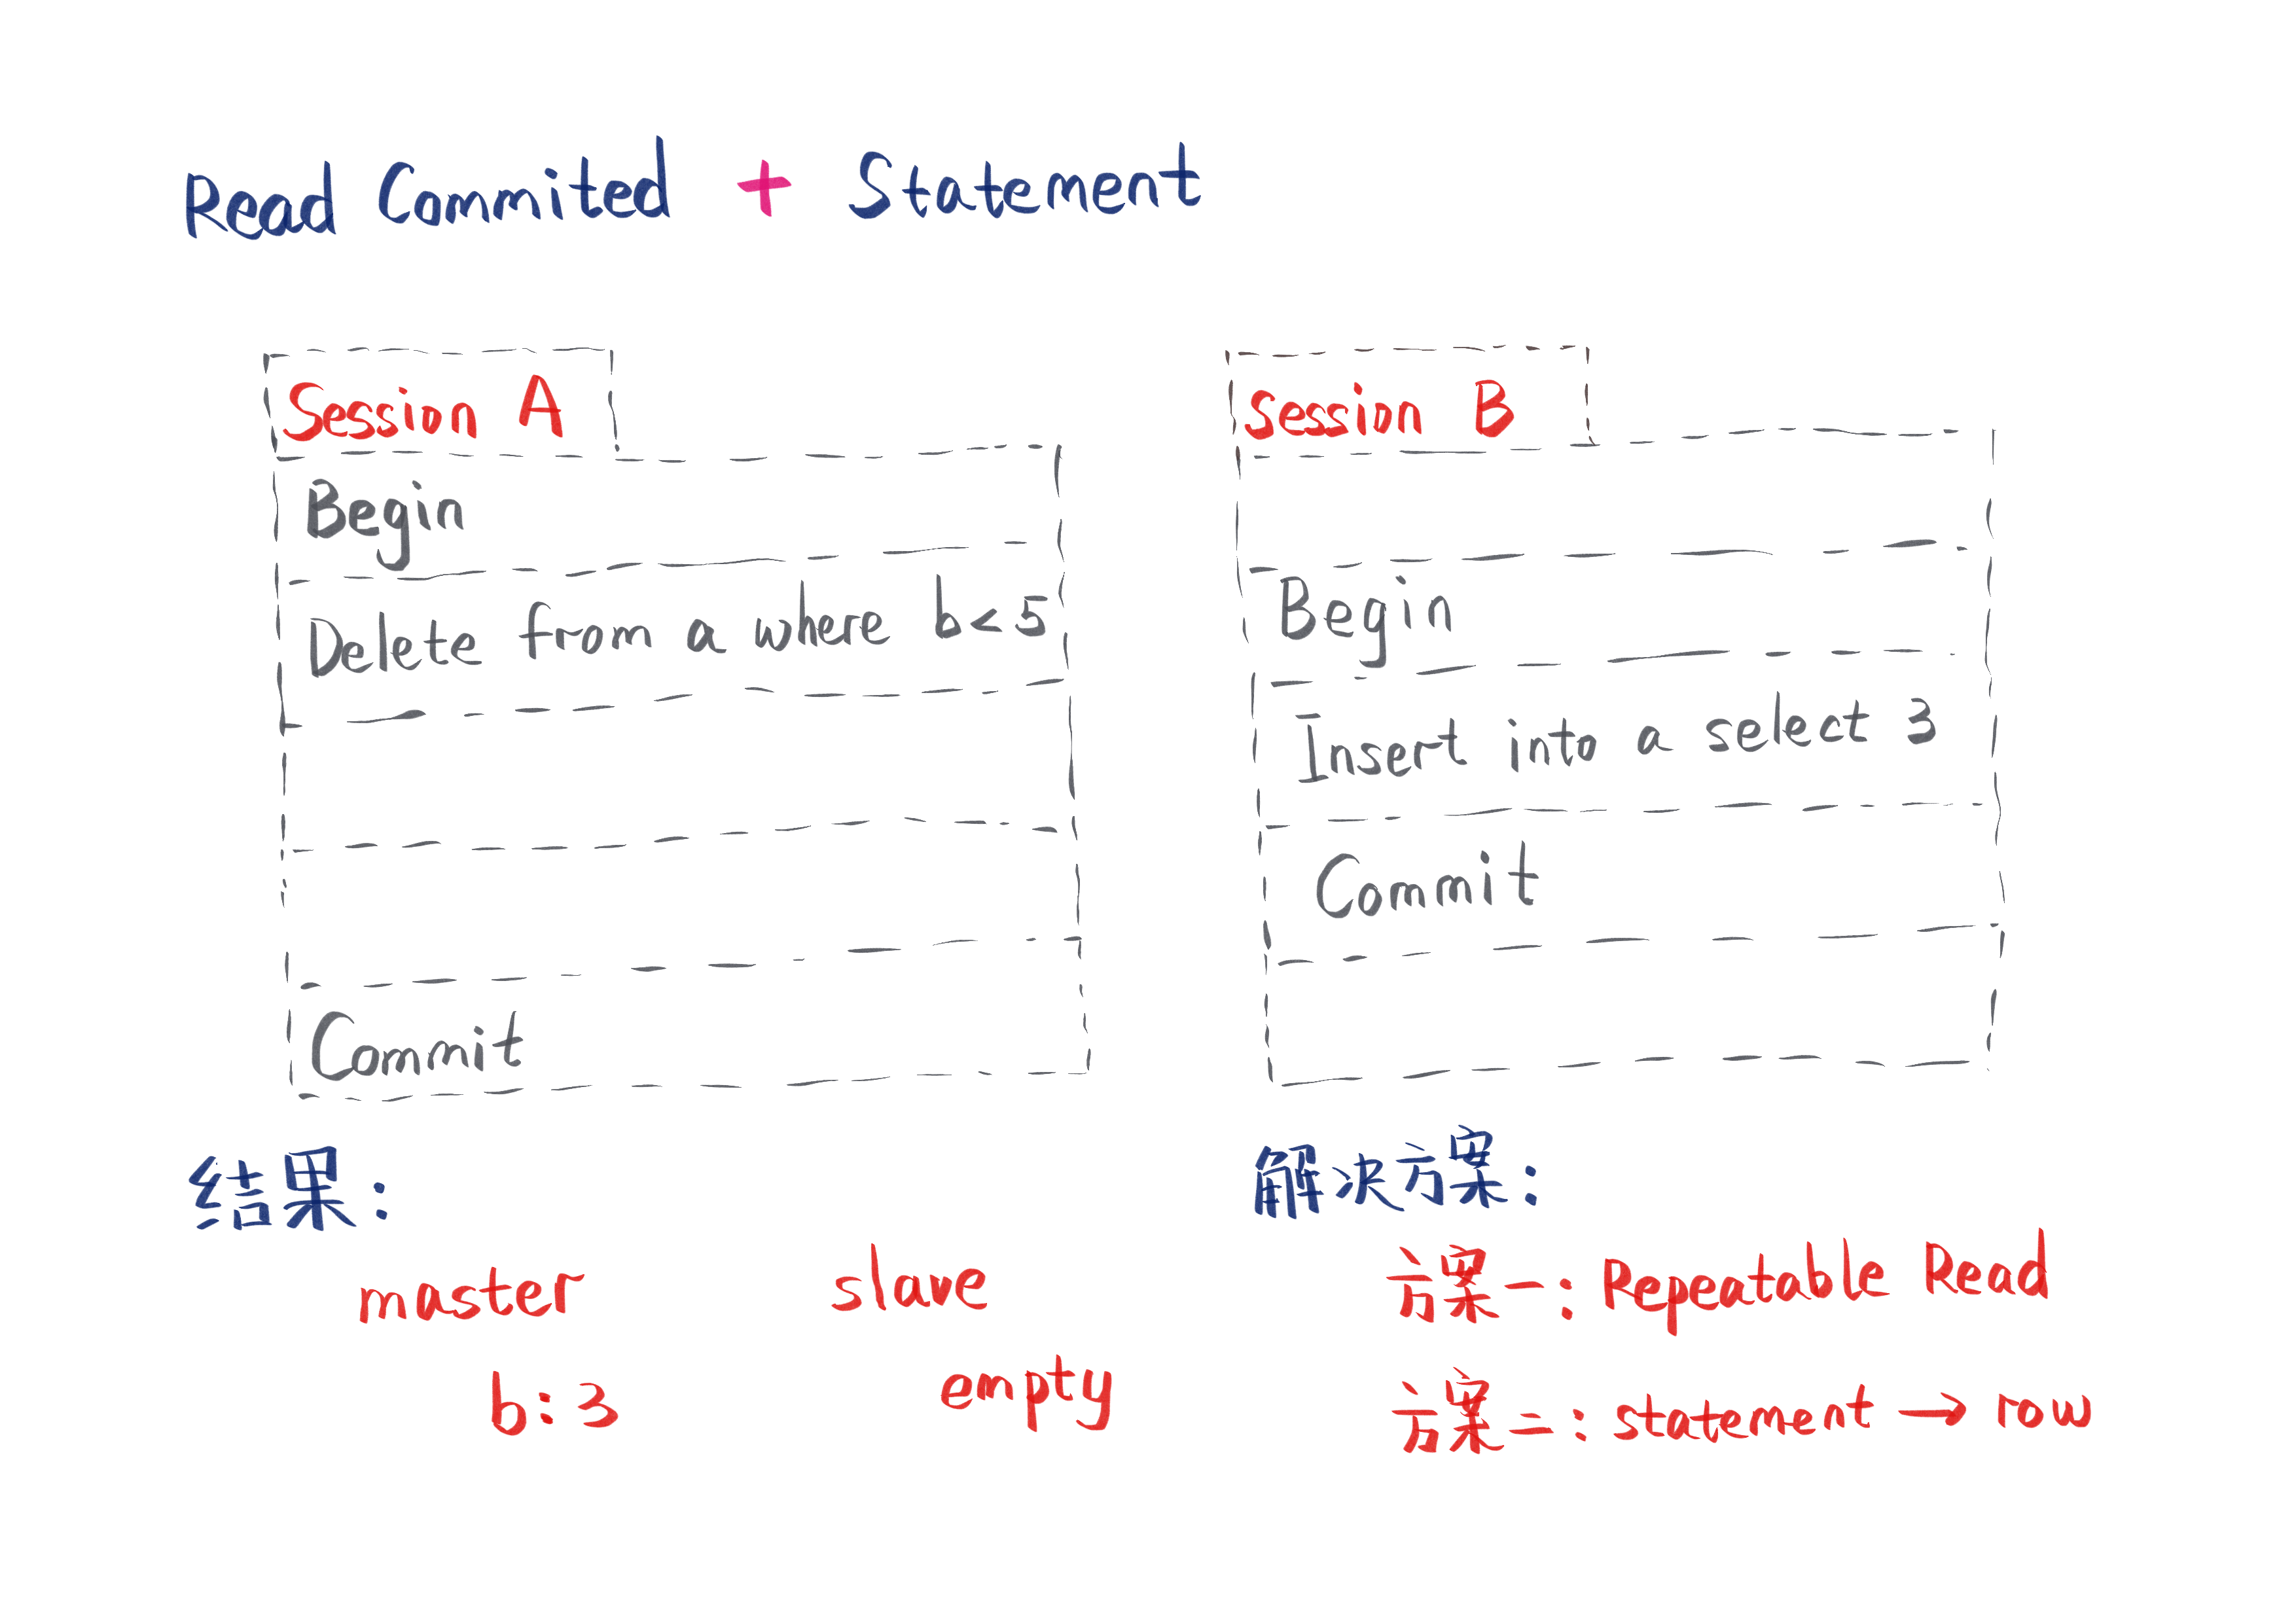 Read Commited + Statement
Session A
Begin
Delete from a where b<5
Commit
Session B
Begin
Insert into a select 3
Commit
结果：
master slave
b:3 empty
解决方案：
方案一：Repeatable Read
方案二：statement → row